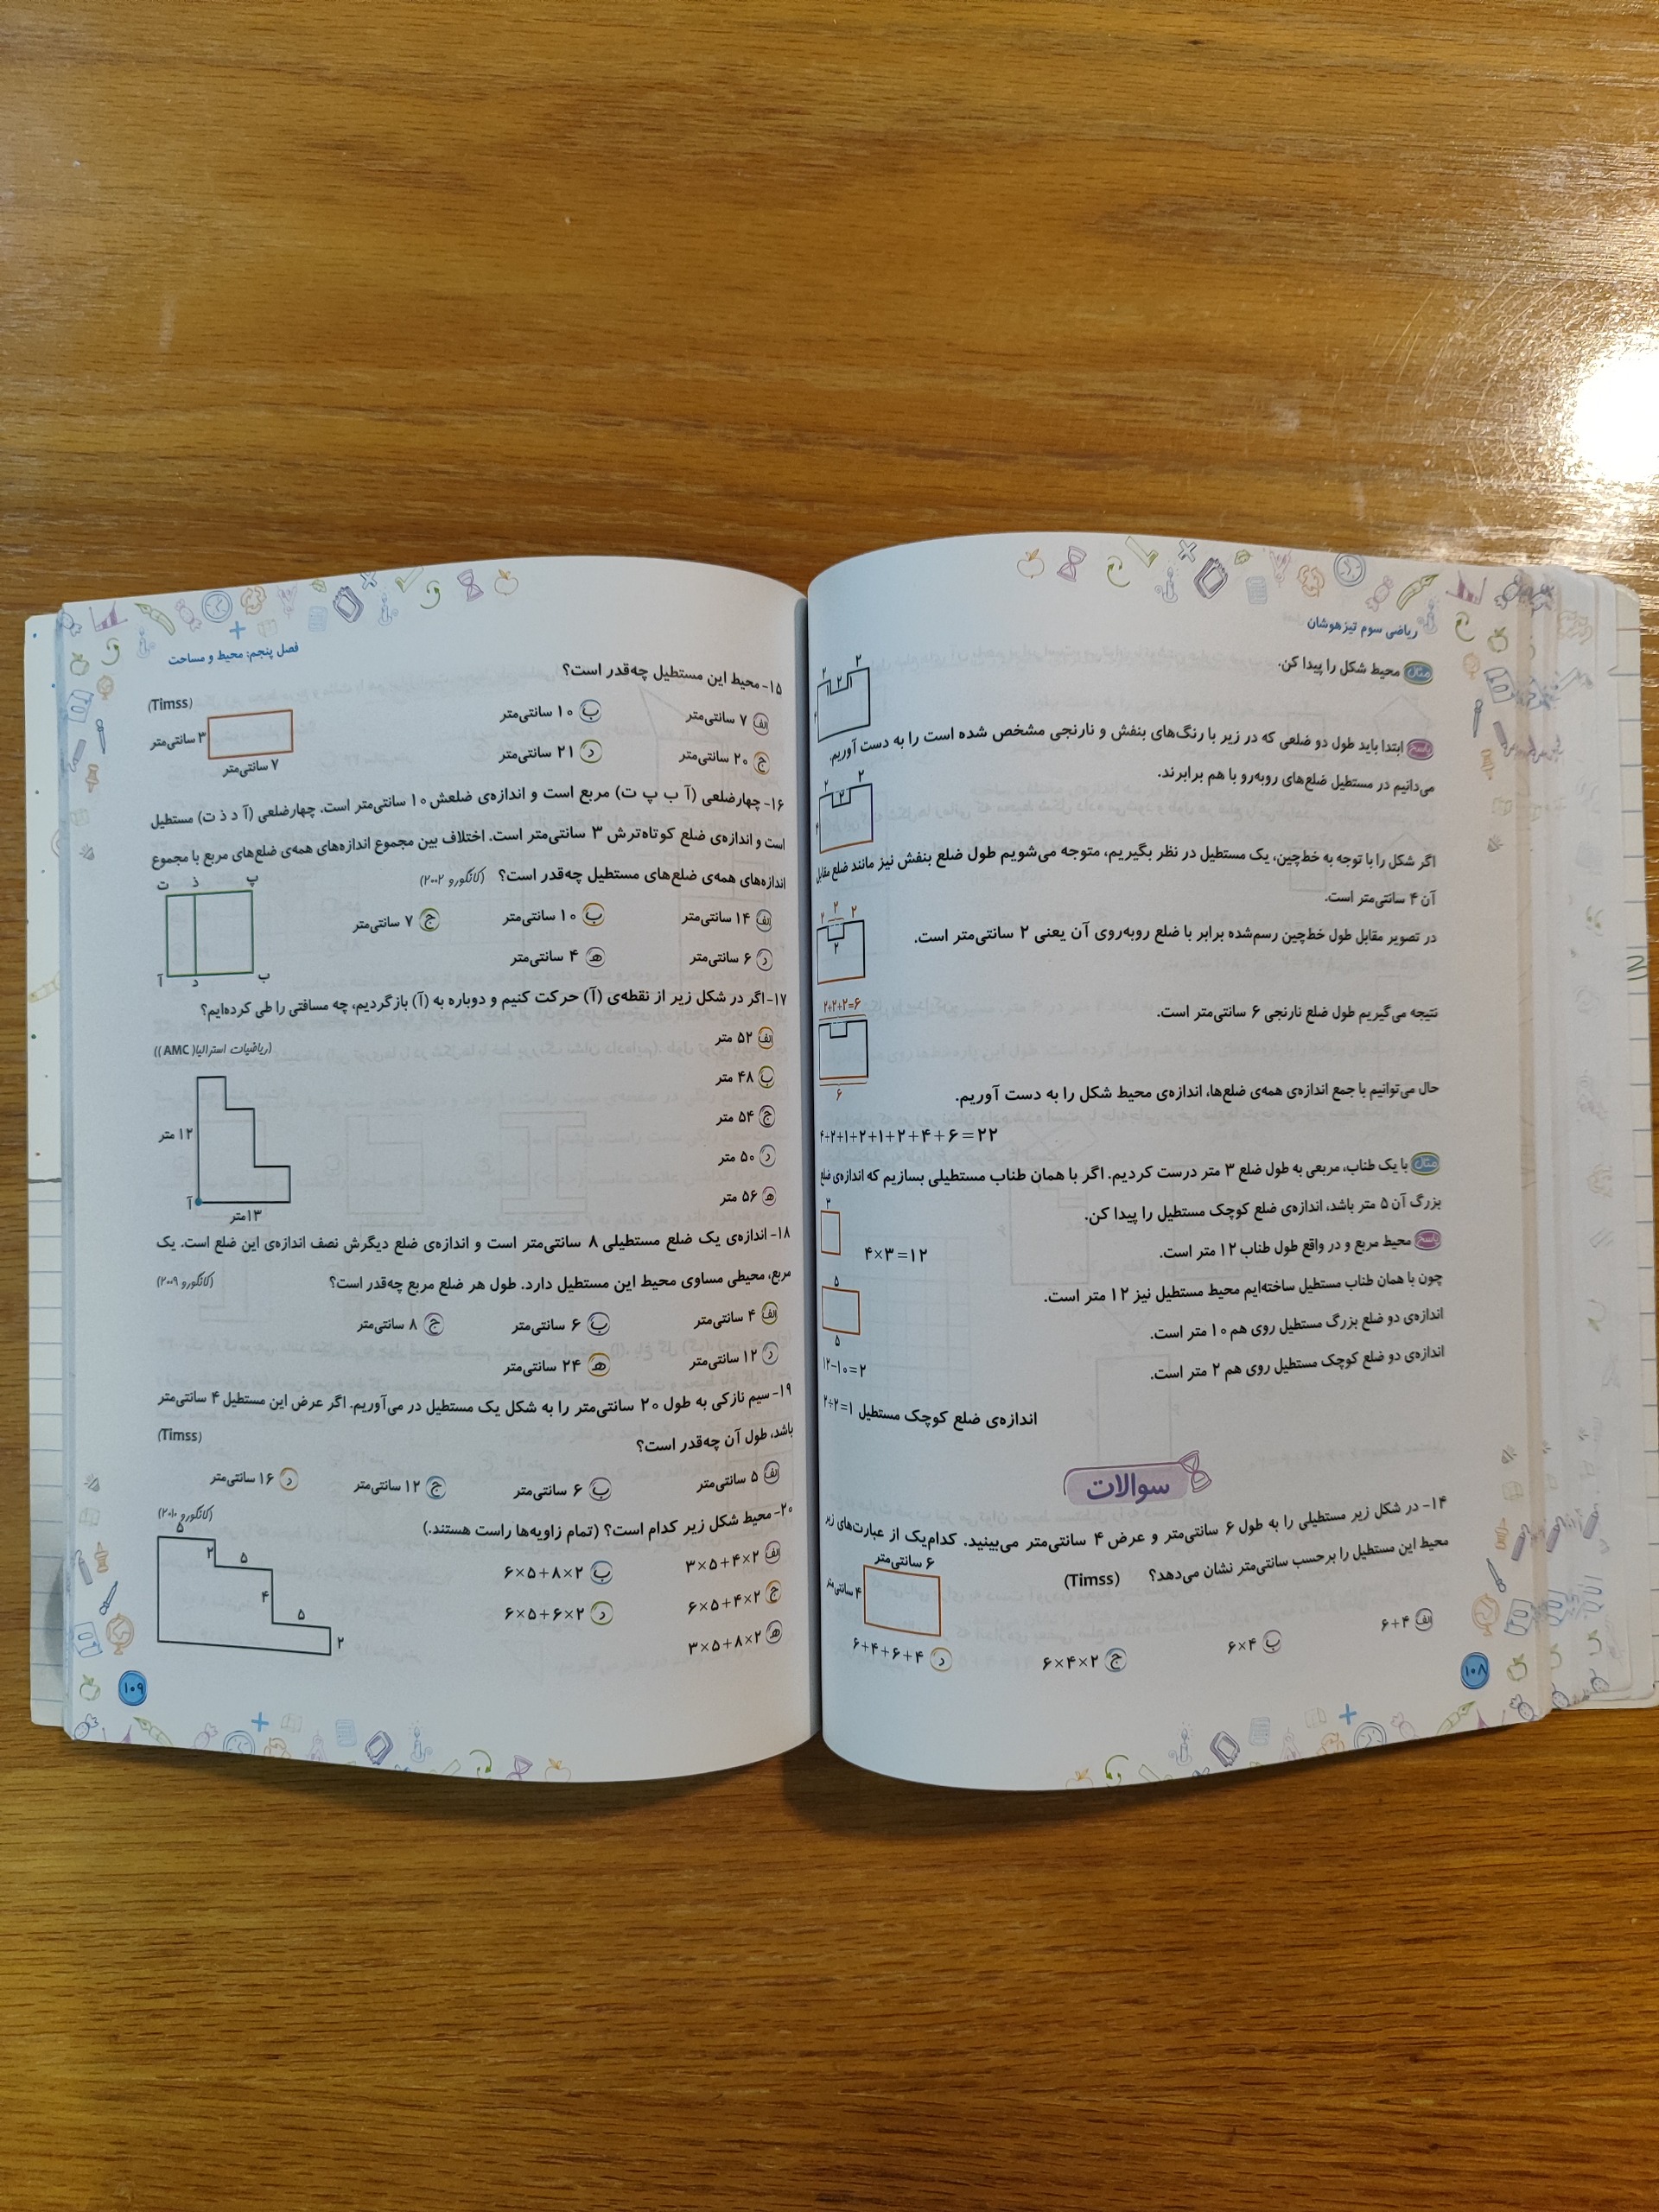 ریاضی سوم تیزهوشان
مثال محیط شکل را پیدا کن.
۲ ۲ ۲
پاسخ ابتدا باید طول دو ضلعی که در زیر با رنگ‌های بنفش و نارنجی مشخص شده است را به دست آوریم.
می‌دانیم در مستطیل ضلع‌های روبه‌رو با هم برابرند.
۲ ۲ ۲
اگر شکل را با توجه به خط‌چین، یک مستطیل در نظر بگیریم، متوجه می‌شویم طول ضلع بنفش نیز مانند ضلع مقابل
آن ۴ سانتی‌متر است.
۲ ۲ ۲
در تصویر مقابل طول خط‌چین رسم‌شده برابر با ضلع روبه‌روی آن یعنی ۲ سانتی‌متر است.
۲
۲+۲+۲=۶
نتیجه می‌گیریم طول ضلع نارنجی ۶ سانتی‌متر است.
۶
حال می‌توانیم با جمع اندازه‌ی همه‌ی ضلع‌ها، اندازه‌ی محیط شکل را به دست آوریم.
+۲+۱+۲+۱+۲+۴+۶=۲۲
مثال با یک طناب، مربعی به طول ضلع ۳ متر درست کردیم. اگر با همان طناب مستطیلی بسازیم که اندازه‌ی ضلع
بزرگ آن ۵ متر باشد، اندازه‌ی ضلع کوچک مستطیل را پیدا کن.
۳
پاسخ محیط مربع و در واقع طول طناب ۱۲ متر است.
۴×۳=۱۲
چون با همان طناب مستطیل ساخته‌ایم محیط مستطیل نیز ۱۲ متر است.
۵
اندازه‌ی دو ضلع بزرگ مستطیل روی هم ۱۰ متر است.
۵
اندازه‌ی دو ضلع کوچک مستطیل روی هم ۲ متر است.
۱۲−۱۰=۲
اندازه‌ی ضلع کوچک مستطیل ۲÷۲=۱
سوالات
۱۴- در شکل زیر مستطیلی را به طول ۶ سانتی‌متر و عرض ۴ سانتی‌متر می‌بینید. کدام‌یک از عبارت‌های زیر
محیط این مستطیل را برحسب سانتی‌متر نشان می‌دهد؟ (Timss)
۶ سانتی‌متر
۴ سانتی‌متر
الف ۶+۴
ب ۶×۴
ج ۶×۴×۲
د ۶+۴+۶+۴
۱۰۸
فصل پنجم: محیط و مساحت
۱۵- محیط این مستطیل چه‌قدر است؟
(Timss)
الف ۷ سانتی‌متر
ب ۱۰ سانتی‌متر
ج ۲۰ سانتی‌متر
د ۲۱ سانتی‌متر
۳ سانتی‌متر
۷ سانتی‌متر
۱۶- چهارضلعی (آ ب پ ت) مربع است و اندازه‌ی ضلعش ۱۰ سانتی‌متر است. چهارضلعی (آ د ذ ت) مستطیل
است و اندازه‌ی ضلع کوتاه‌ترش ۳ سانتی‌متر است. اختلاف بین مجموع اندازه‌های همه‌ی ضلع‌های مربع با مجموع
اندازه‌های همه‌ی ضلع‌های مستطیل چه‌قدر است؟ (کانگورو ۲۰۰۲)
الف ۱۴ سانتی‌متر
ب ۱۰ سانتی‌متر
ج ۷ سانتی‌متر
د ۶ سانتی‌متر
ه ۴ سانتی‌متر
پ ذ ت
ب د آ
۱۷- اگر در شکل زیر از نقطه‌ی (آ) حرکت کنیم و دوباره به (آ) بازگردیم، چه مسافتی را طی کرده‌ایم؟
(ریاضیات استرالیا(AMC))
الف ۵۲ متر
ب ۴۸ متر
ج ۵۴ متر
د ۵۰ متر
ه ۵۶ متر
۱۲ متر
آ
۱۳متر
۱۸- اندازه‌ی یک ضلع مستطیلی ۸ سانتی‌متر است و اندازه‌ی ضلع دیگرش نصف اندازه‌ی این ضلع است. یک
مربع، محیطی مساوی محیط این مستطیل دارد. طول هر ضلع مربع چه‌قدر است؟ (کانگورو ۲۰۰۹)
الف ۴ سانتی‌متر
ب ۶ سانتی‌متر
ج ۸ سانتی‌متر
د ۱۲ سانتی‌متر
ه ۲۴ سانتی‌متر
۱۹- سیم نازکی به طول ۲۰ سانتی‌متر را به شکل یک مستطیل در می‌آوریم. اگر عرض این مستطیل ۴ سانتی‌متر
باشد، طول آن چه‌قدر است؟ (Timss)
الف ۵ سانتی‌متر
ب ۶ سانتی‌متر
ج ۱۲ سانتی‌متر
د ۱۶ سانتی‌متر
۲۰- محیط شکل زیر کدام است؟ (تمام زاویه‌ها راست هستند.) (کانگورو ۲۰۱۰)
الف ۳×۵+۴×۲
ب ۶×۵+۸×۲
ج ۶×۵+۴×۲
د ۶×۵+۶×۲
ه ۳×۵+۸×۲
۵
۲
۵
۴
۵
۲
۱۰۹